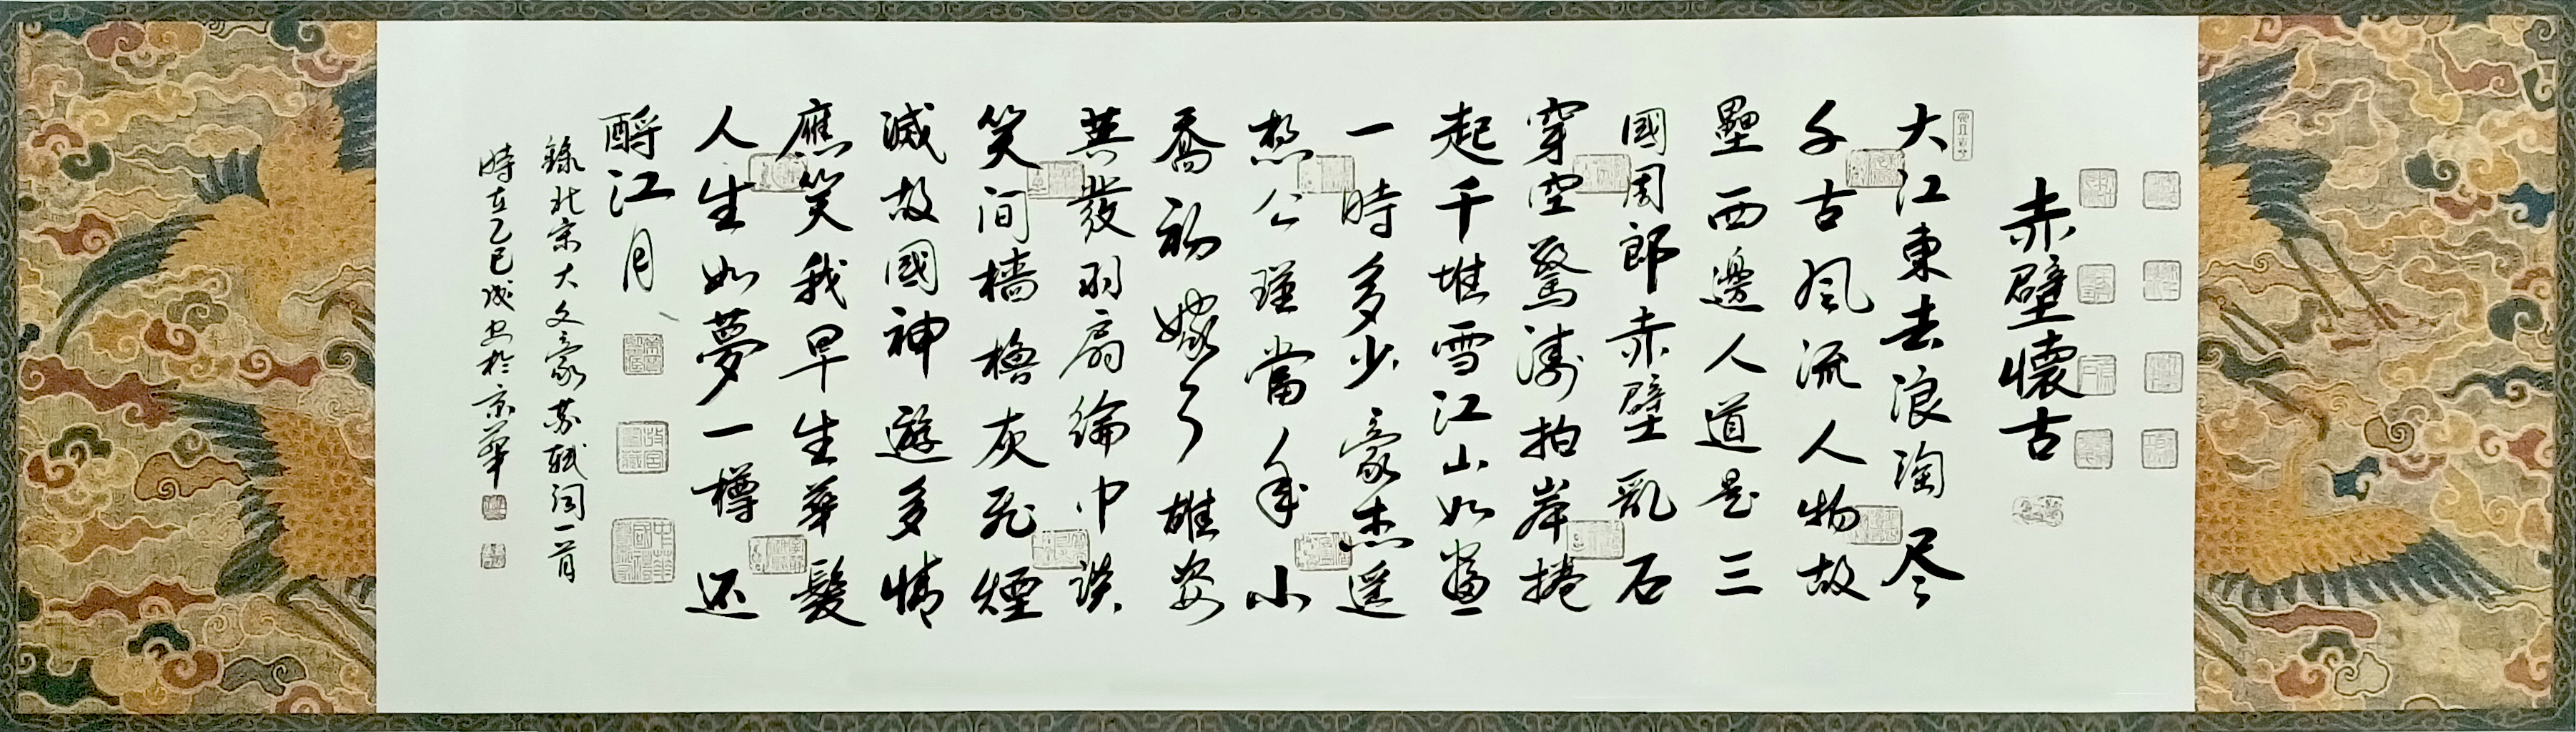 赤壁懷古
大江東去浪淘尽
千古风流人物故
壘西邊人道是三
國周郎赤壁亂石
穿空驚濤拍岸捲
起千堆雪江山如畫
一時多少豪杰遥
想公瑾當年小
喬初嫁了雄姿
英發羽扇綸巾談
笑间檣櫓灰飛煙
滅故國神遊多情
應笑我早生華髮
人生如夢一樽还
酹江月
錄北宋大文豪苏轼词一首
時在乙巳戌安於京華